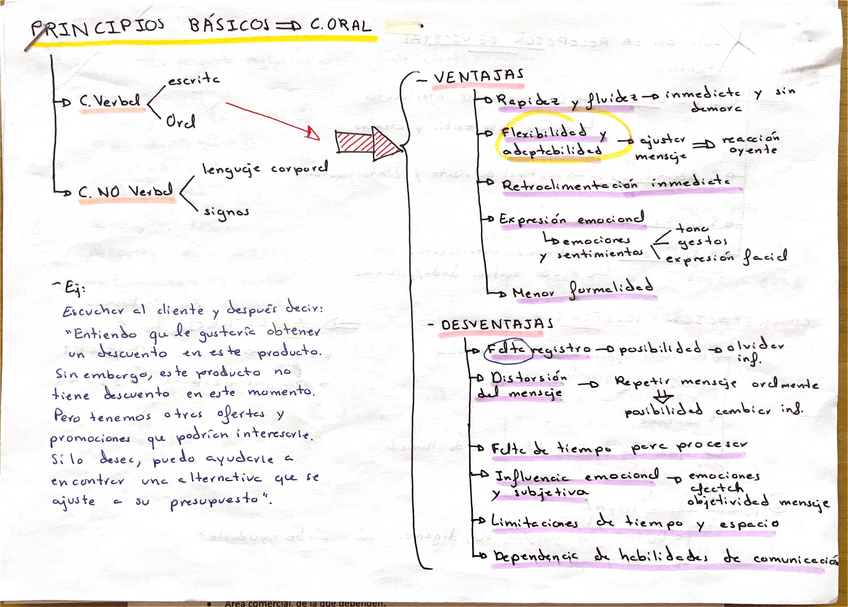 PRINCIPIOS BÁSICOS ⇒ C. ORAL
C. Verbal
escrita
Oral
C. NO Verbal
lenguaje corporal
signos
- Ej:
Escuchar al cliente y después decir:
"Entiendo que le gustaría obtener
un descuento en este producto.
Sin embargo, este producto no
tiene descuento en este momento.
Pero tenemos otras ofertas y
promociones que podrían interesarle.
Si lo desea, puedo ayudarle a
encontrar una alternativa que se
ajuste a su presupuesto".
- VENTAJAS
Rapidez y fluidez → inmediata y sin
demora
Flexibilidad y
adaptabilidad → ajustar
mensaje ⇒ reacción
oyente
Retroalimentación inmediata
Expresión emocional
↳ emociones
y sentimientos
tono
gestos
expresión facial
Menor formalidad
- DESVENTAJAS
Falta registro → posibilidad → olvidar
inf.
Distorsión
del mensaje → Repetir mensaje oralmente
⇓
posibilidad cambiar inf.
Falta de tiempo para procesar
Influencia emocional
y subjetiva → emociones
afectan
objetividad mensaje
Limitaciones de tiempo y espacio
Dependencia de habilidades de comunicación
• Área comercial, de la que dependen.